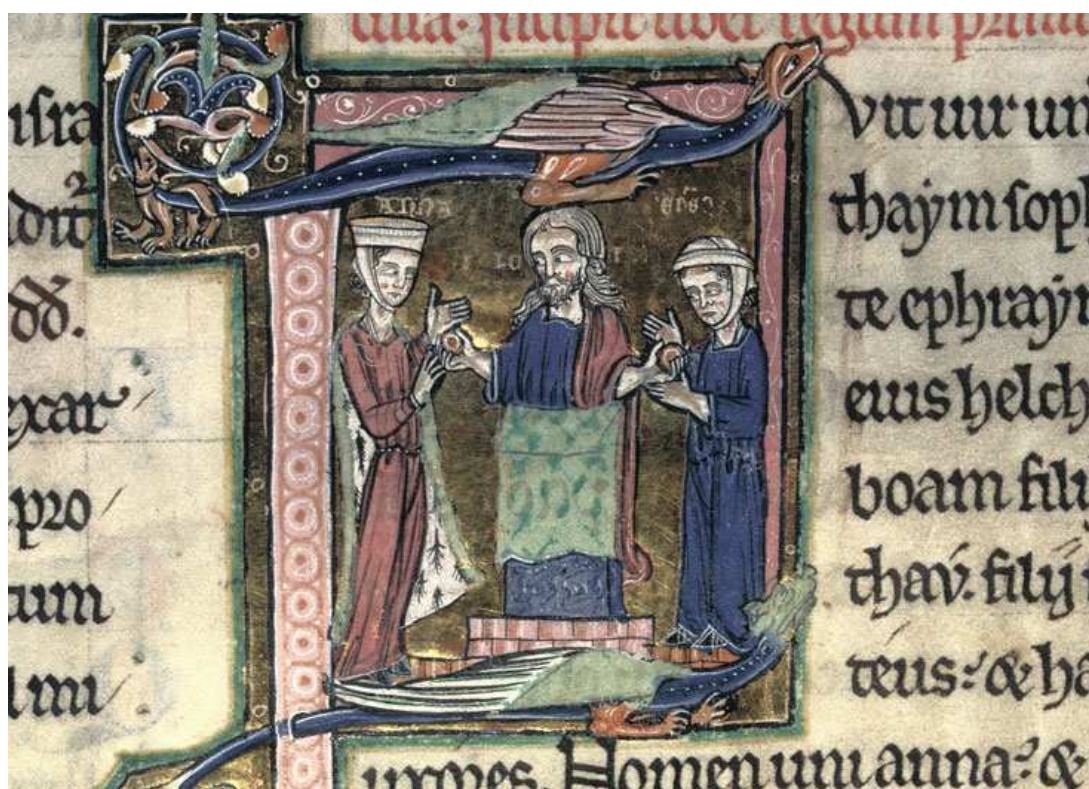 Incipit liber regum primu
isra
dit
dd.
exar
pro
tum
l mi
ANNA
Vit uir un
thaym soph
te ephraym
eius helch
boam fili
thau. filij
teus: & ha
uxores. Nomen uni anna: &